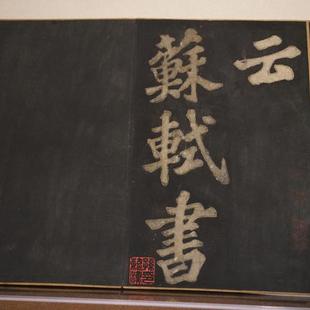 云
蘇軾書